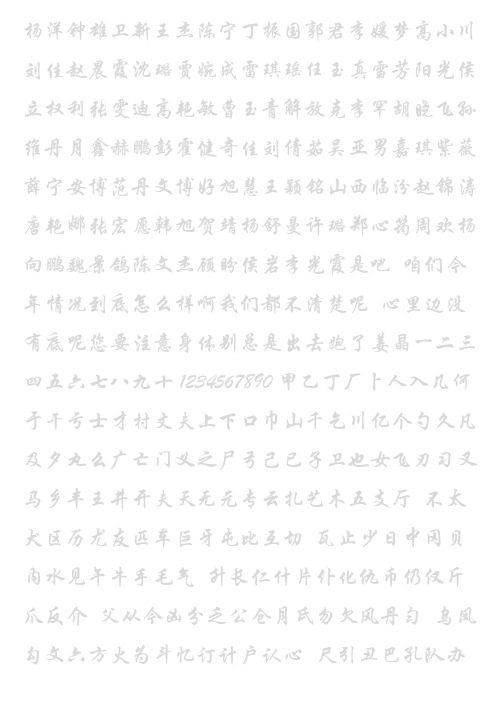 杨洋钟雄卫新王杰陈宁丁振国郭君李媛梦高小川
刘佳赵晨霞沈璐贾婉成雷琪瑶任玉真雪芳阳光侯
立权利张雯迪高艳敏曹玉青解放克李罕胡晓飞孙
维丹月鑫赫鹏彭霍健奇佳刘倩茹吴亚男嘉琪紫薇
薛宁安博范丹文博好旭慧王颖铭山西临汾赵锦涛
唐艳娜张宏愿韩旭贺靖杨舒曼许璐郑心筠周欢杨
向鹏魏景鸽陈文杰顾盼侯岩李光霞是吧 咱们今
年情况到底怎么样啊我们都不清楚呢 心里边没
有底呢您要注意身体别总是出去跑了姜晶一二三
四五六七八九十1234567890甲乙丁厂卜人入几何
于干亏士才村丈夫上下口巾山千乞川亿个勺久凡
及夕丸么广亡门义之尸弓己已孑卫也女飞刃习叉
马乡丰王井开夫天无元专云扎艺术五支厅 不太
犬区历尤友匹车巨牙屯比互切 瓦止少日中冈贝
内水见午牛手毛气 升长仁什片仆化仇币仍仅斤
爪反介 父从今凶分乏公仓月氏勿欠风丹匀 乌凤
勾文六方火为斗忆订计户认心 尺引丑巴孔队办